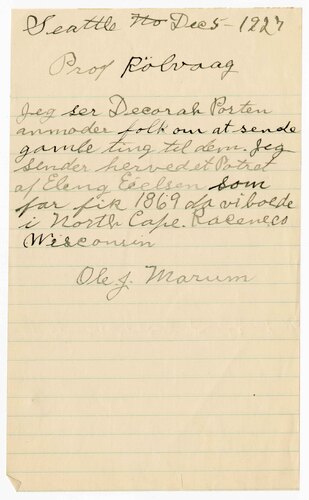 Seattle Wn Dec 5 - 1927
Prof Rölvaag
Jeg ser Decorah Posten
anmoder folk om at sende
gamle ting til dem. Jeg
sender herved et Potræt
af Eleng Eielsen som
far fik 1869 da vi boede
i North Cape. Racene, co
Wisconsin
Ole J. Marum